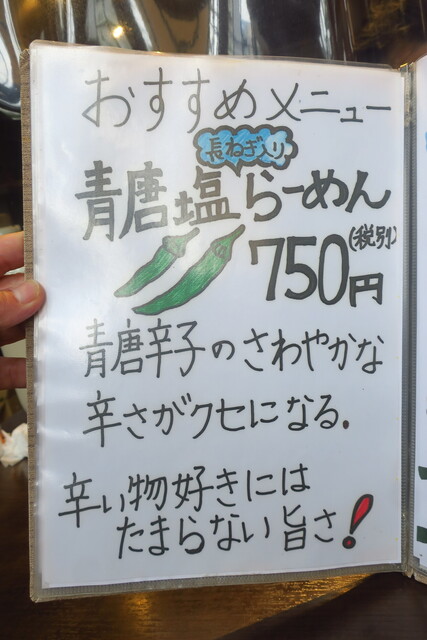 おすすめメニュー
長ねぎ入り
青唐塩らーめん
750円(税別)
青唐辛子のさわやかな
辛さがクセになる.
辛い物好きには
たまらない旨さ!